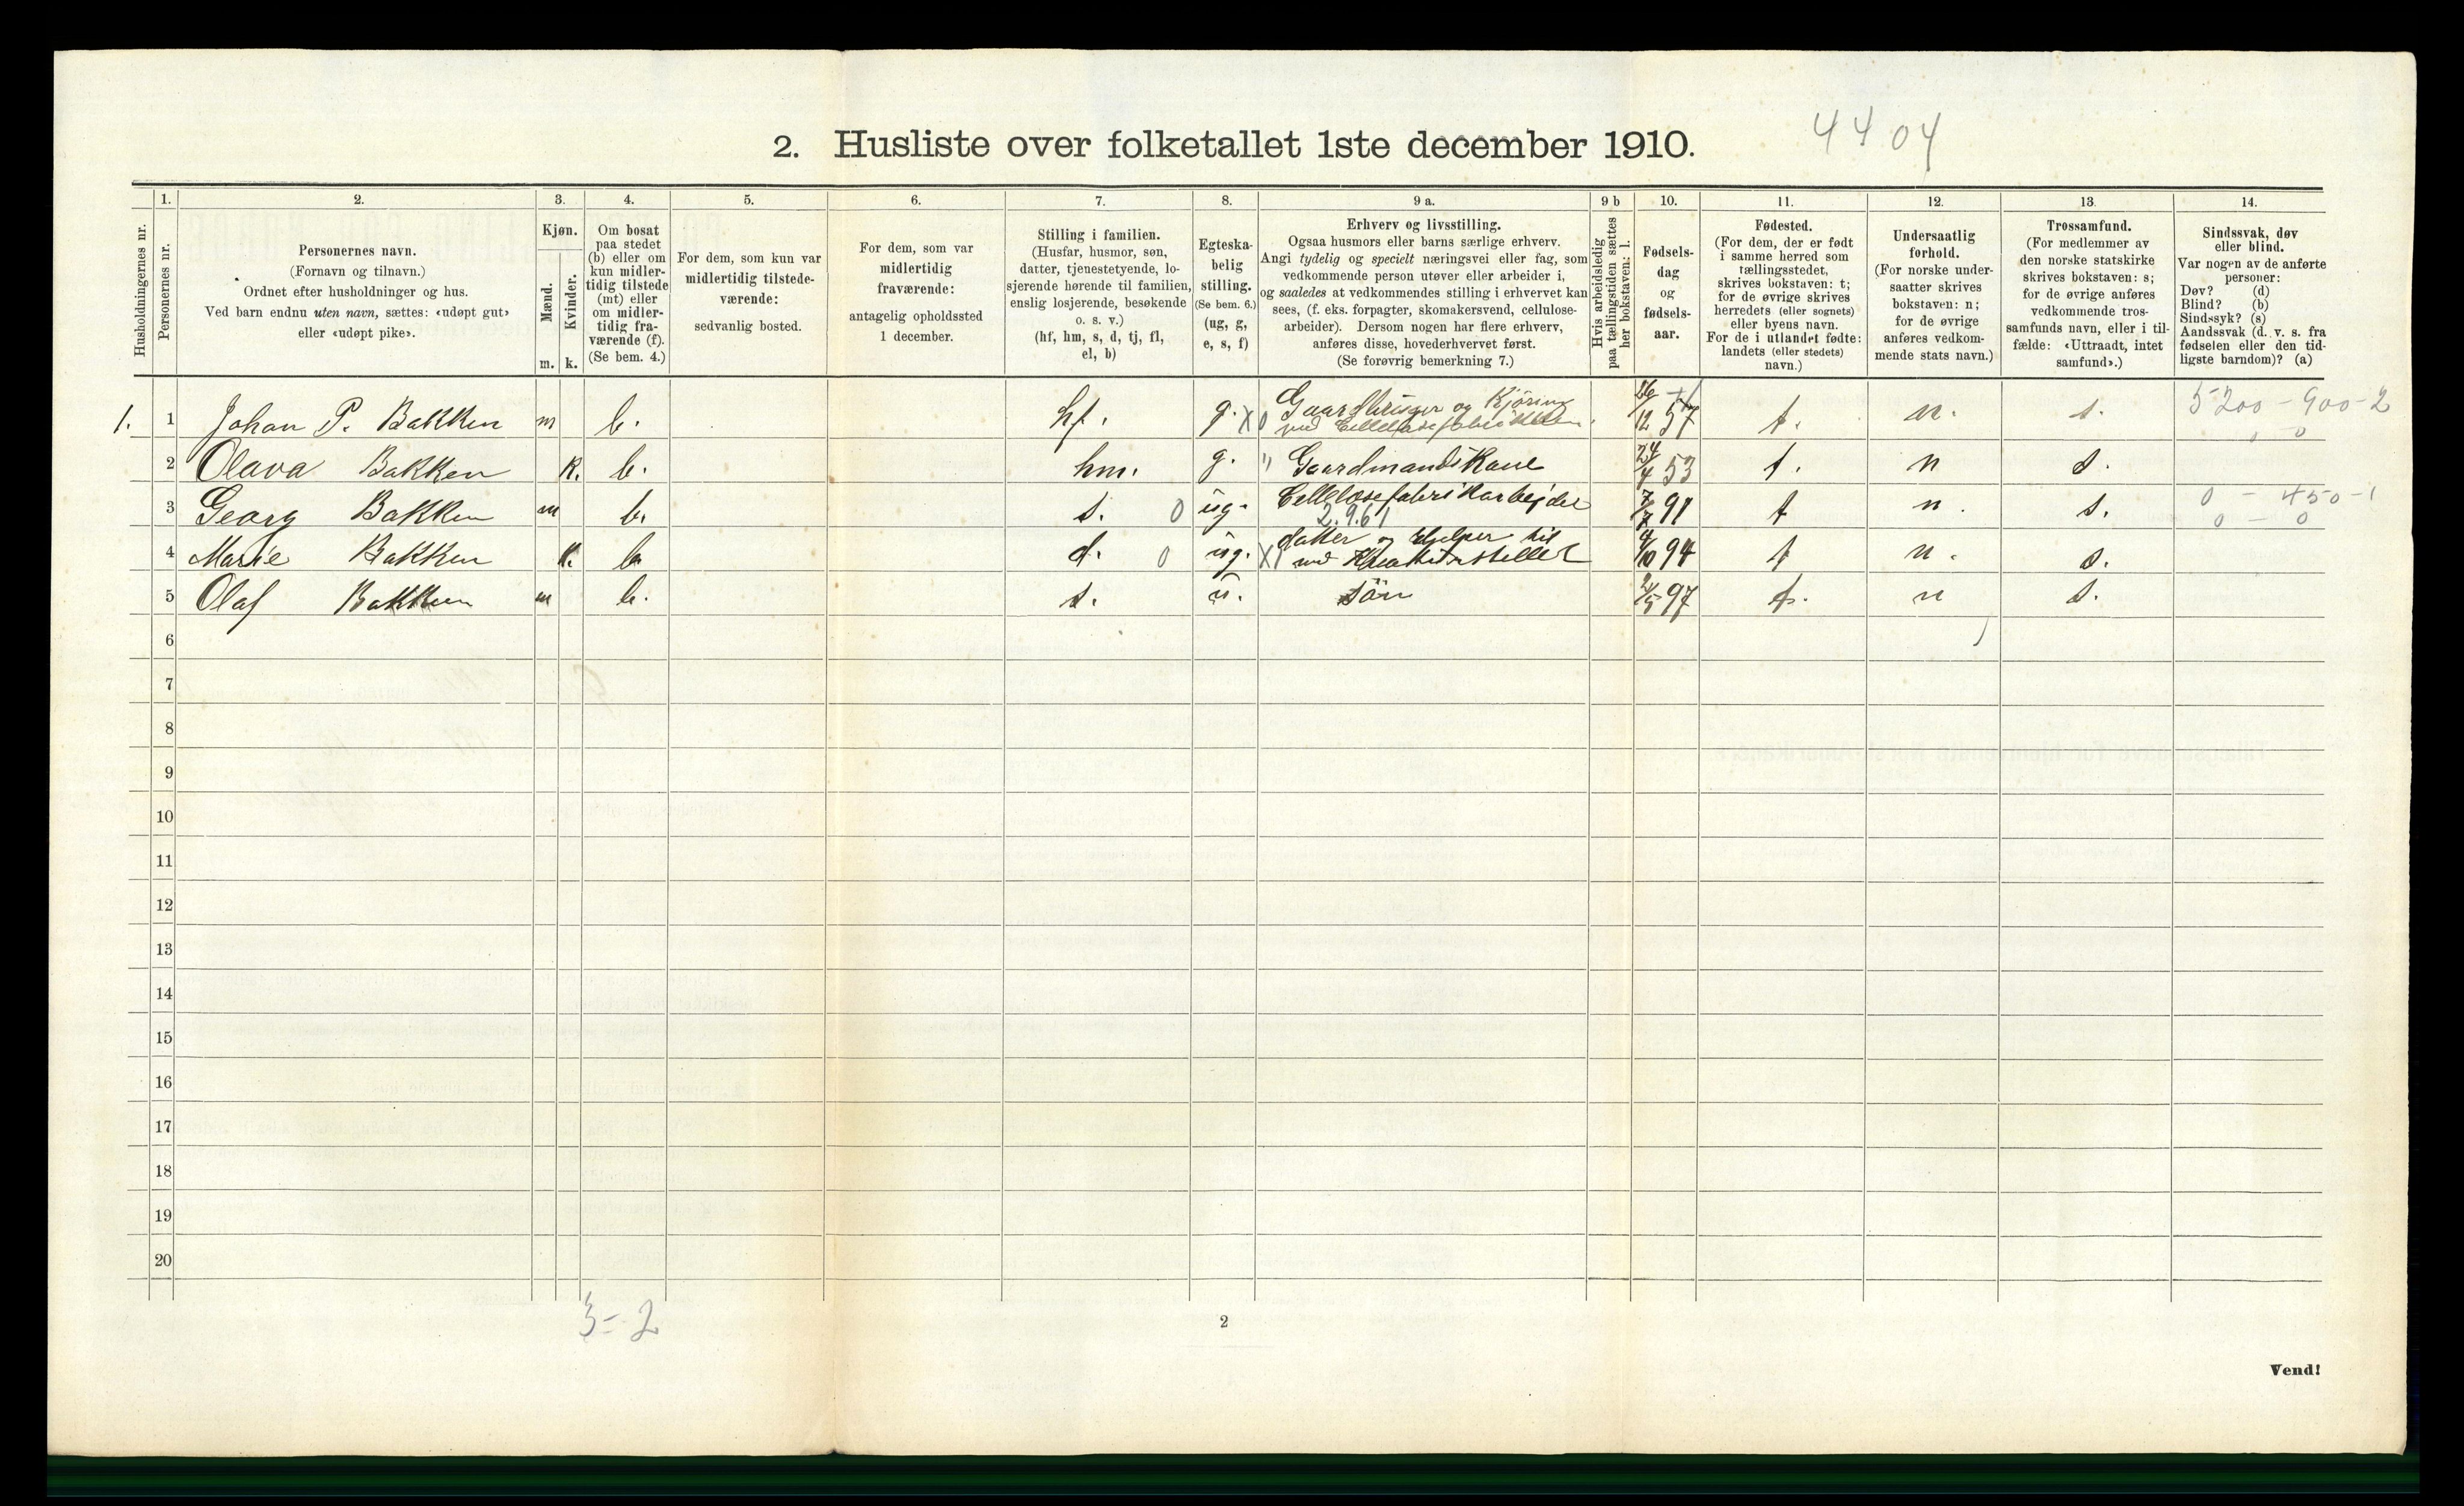 4404
2. Husliste over folketallet 1ste december 1910.
Husholdningernes nr.
1.
Personernes nr.
2.
Personernes navn.
(Fornavn og tilnavn.)
Ordnet efter husholdninger og hus.
Ved barn endnu uten navn, sættes: «udøpt gut»
eller «udøpt pike».
3.
Kjøn.
Mænd.
Kvinder.
m. k.
4.
Om bosat
paa stedet
(b) eller om
kun midler-
tidig tilstede
(mt) eller
om midler-
tidig fra-
værende (f).
(Se bem. 4.)
5.
For dem, som kun var
midlertidig tilstede-
værende:
sedvanlig bosted.
6.
For dem, som var
midlertidig
fraværende:
antagelig opholdssted
1 december.
7.
Stilling i familien.
(Husfar, husmor, søn,
datter, tjenestetyende, lo-
sjerende hørende til familien,
enslig losjerende, besøkende
o. s. v.)
(hf, hm, s, d, tj, fl,
el, b)
8.
Egteska-
belig
stilling.
(Se bem. 6.)
(ug, g,
e, s, f)
9 a.
Erhverv og livsstilling.
Ogsaa husmors eller barns særlige erhverv.
Angi tydelig og specielt næringsvei eller fag, som
vedkommende person utøver eller arbeider i,
og saaledes at vedkommendes stilling i erhvervet kan
sees, (f. eks. forpagter, skomakersvend, cellulose-
arbeider). Dersom nogen har flere erhverv,
anføres disse, hovederhvervet først.
(Se forøvrig bemerkning 7.)
9 b
Hvis arbeidsledig
paa tællingstiden sættes
her bokstaven: l.
10.
Fødsels-
dag
og
fødsels-
aar.
11.
Fødested.
(For dem, der er født
i samme herred som
tællingsstedet,
skrives bokstaven: t;
for de øvrige skrives
herredets (eller sognets)
eller byens navn.
For de i utlandet fødte:
landets (eller stedets)
navn.)
12.
Undersaatlig
forhold.
(For norske under-
saatter skrives
bokstaven: n;
for de øvrige
anføres vedkom-
mende stats navn.)
13.
Trossamfund.
(For medlemmer av
den norske statskirke
skrives bokstaven: s;
for de øvrige anføres
vedkommende tros-
samfunds navn, eller i til-
fælde: «Uttraadt, intet
samfund».)
14.
Sindssvak, døv
eller blind.
Var nogen av de anførte
personer:
Døv? (d)
Blind? (b)
Sindssyk? (s)
Aandssvak (d. v. s. fra
fødselen eller den tid-
ligste barndom)? (a)
1. 1 Johan P. Bakken m b. hf. g. X0 Gaardbruger og Kjöring ved Cellulosefabrikken. 26/12 57 t. n. s. 5200-900-2
0 0
2 Olava Bakken k. b. hm. g. " Gaardmandskone 24/4 53 t. n s.
3 Georg Bakken m b. s. 0 ug. Cellulosefabrikarbejder 2.9.61 7/7 91 t n. s. 0-450-1
0-0
4 Marie Bakken k. b. d. 0 ug. X1 datter og hjelper til ved Kreaturstellet 4/10 94 t n. s.
5 Olaf Bakken m b. s. u. sön 24/5 97 t. n s.
6
7
8
9
10
11
12
13
14
15
16
17
18
19
20
3-2
2
Vend!